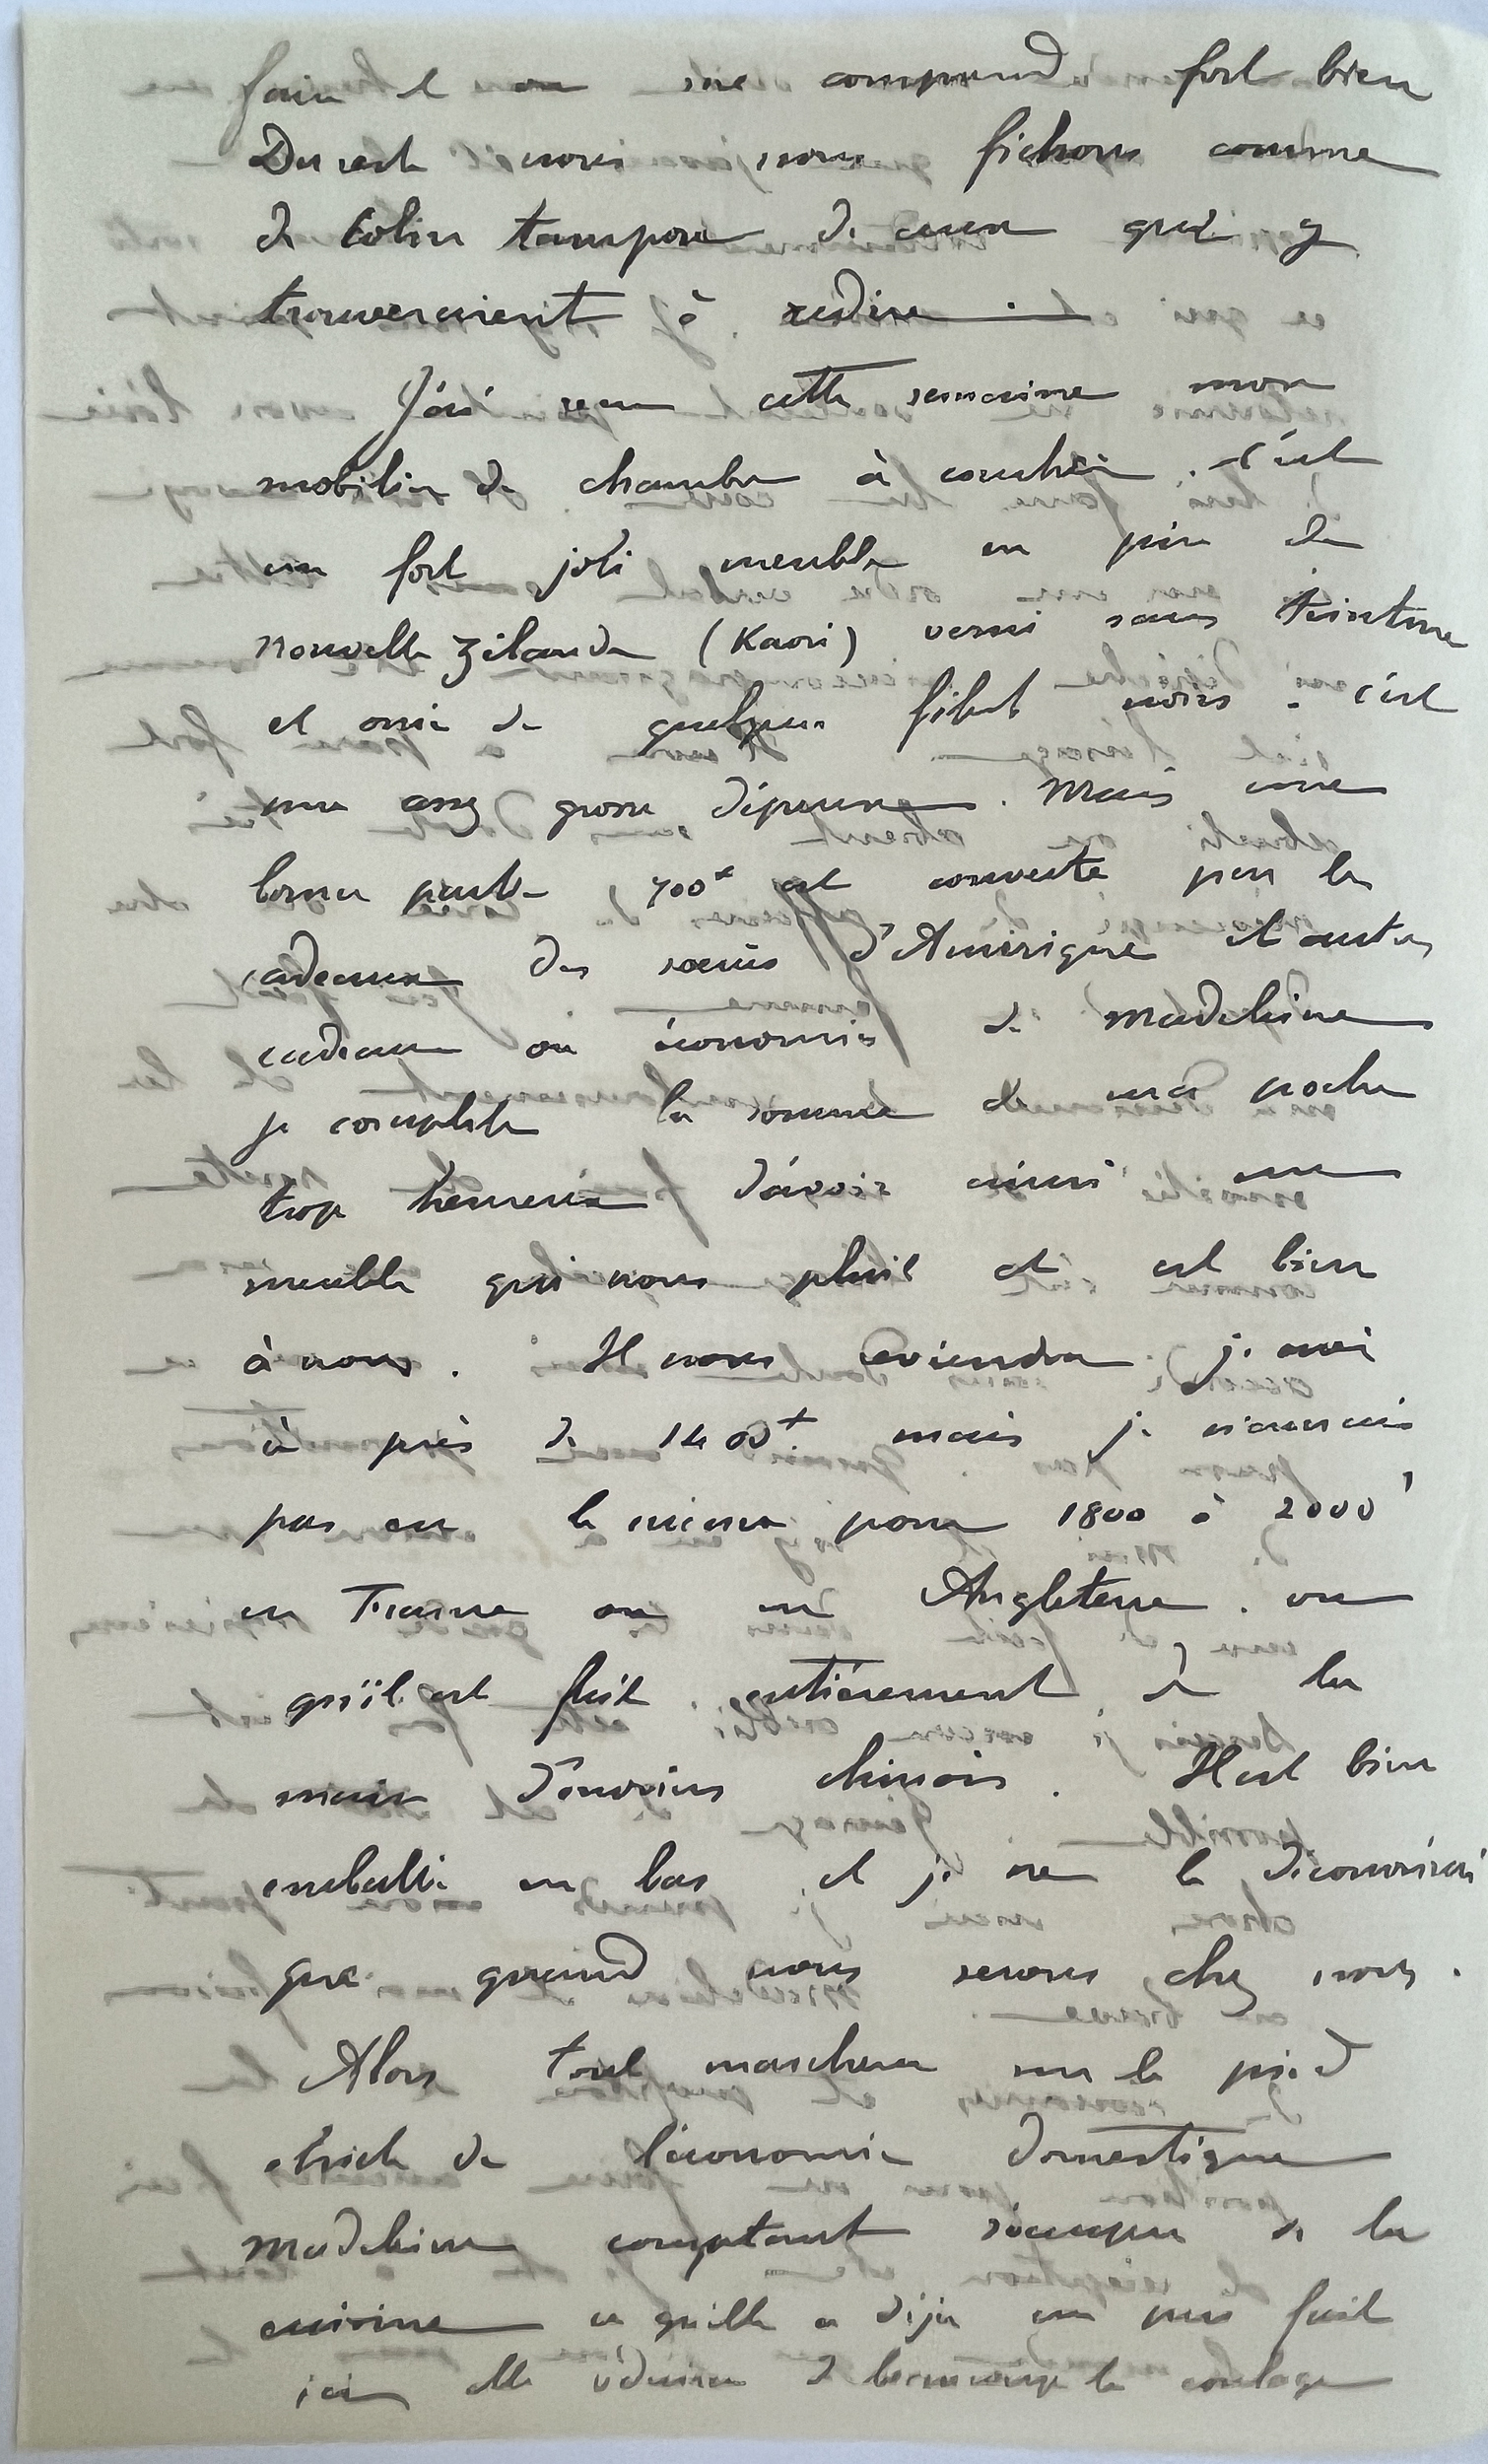 faire et on me comprend fort bien
Du reste nous nous fichons comme
de Colin tampon de ceux qui y
trouveraient à redire.
J'ai reçu cette semaine mon
mobilier de chambre à coucher. C'est
un fort joli meuble en pin de
nouvelle Zélande (Kaori) verni sans teinture
et orné de quelques filets noirs. C'est
une assez grosse dépense. Mais une
bonne partie 700f est couverte par les
cadeaux des soeurs d'Amérique et autres
cadeaux ou économies de Madeleine
je complète la somme de ma poche
trop heureux d'avoir ainsi un
meuble qui nous plait et est bien
à nous. Il nous reviendra je crois
à près de 1400f mais je n'aurais
pas eu le mieux pour 1800 à 2000f
en France ou en Angleterre. vu
qu'il est fait entièrement à la
main d'ouvriers chinois. Il est bien
emballé en bas et je ne le découvrirai
que quand nous serons chez nous.
Alors tout marchera sur le pied
strict de l'économie domestique
Madeleine comptant s'occuper de la
cuisine ce qu'elle a déjà un peu fait
ici elle réduira de beaucoup le coulage